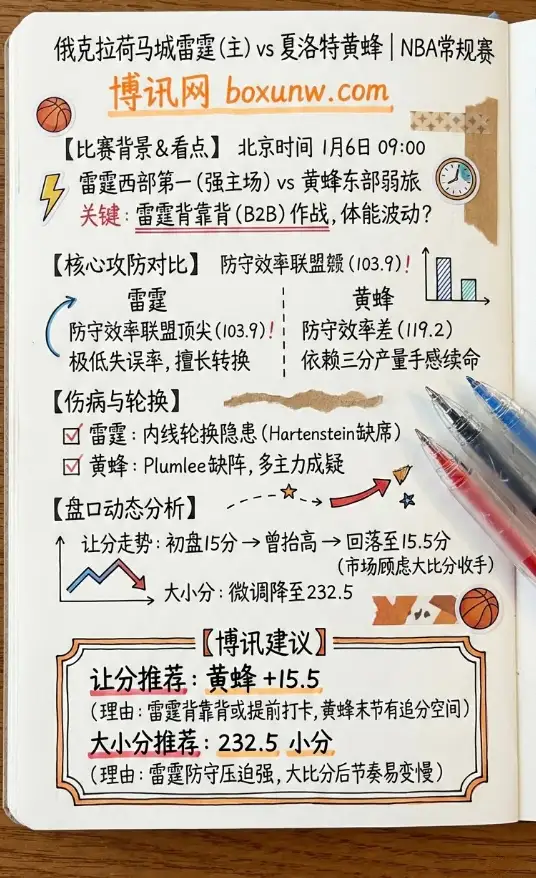 俄克拉荷马城雷霆(主) vs 夏洛特黄蜂 | NBA常规赛
博讯网 boxunw.com
【比赛背景&看点】 北京时间 1月6日 09:00
雷霆西部第一(强主场) vs 黄蜂东部弱旅
关键: 雷霆背靠背(B2B)作战, 体能波动?
【核心攻防对比】 防守效率联盟 (103.9)!
雷霆
防守效率联盟顶尖(103.9)!
极低失误率, 擅长转换
黄蜂
防守效率差(119.2)
依赖三分产量手感续命
【伤病与轮换】
雷霆: 内线轮换隐患(Hartenstein缺席)
黄蜂: Plumlee缺阵, 多主力成疑
【盘口动态分析】
让分走势: 初盘15分→曾抬高→回落至15.5分
(市场顾虑大比分收手)
大小分: 微调降至232.5
【博讯建议】
让分推荐: 黄蜂 +15.5
(理由: 雷霆背靠背或提前打卡, 黄蜂末节有追分空间)
大小分推荐: 232.5 小分
(理由: 雷霆防守压迫强, 大比分后节奏易变慢)